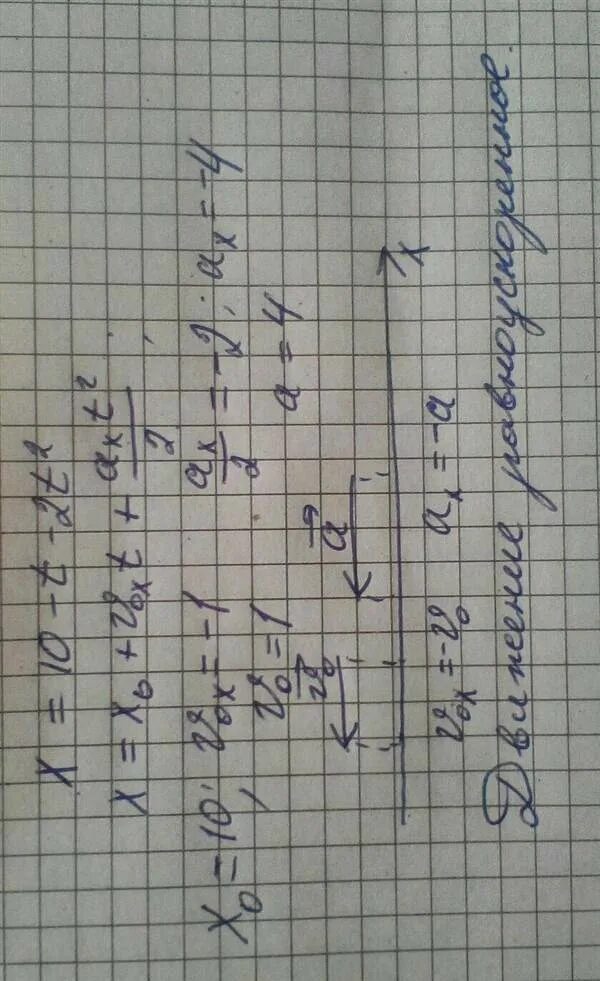 x = 10 - t - 2t²
x = x₀ + v₀ₓt + aₓt²/2;
x₀ = 10; v₀ₓ = -1 aₓ/2 = -2; aₓ = -4
v₀ = 1 a = 4
v⃗₀ a⃗
x
v₀ₓ = -v₀ aₓ = -a
Движение равноускоренное.